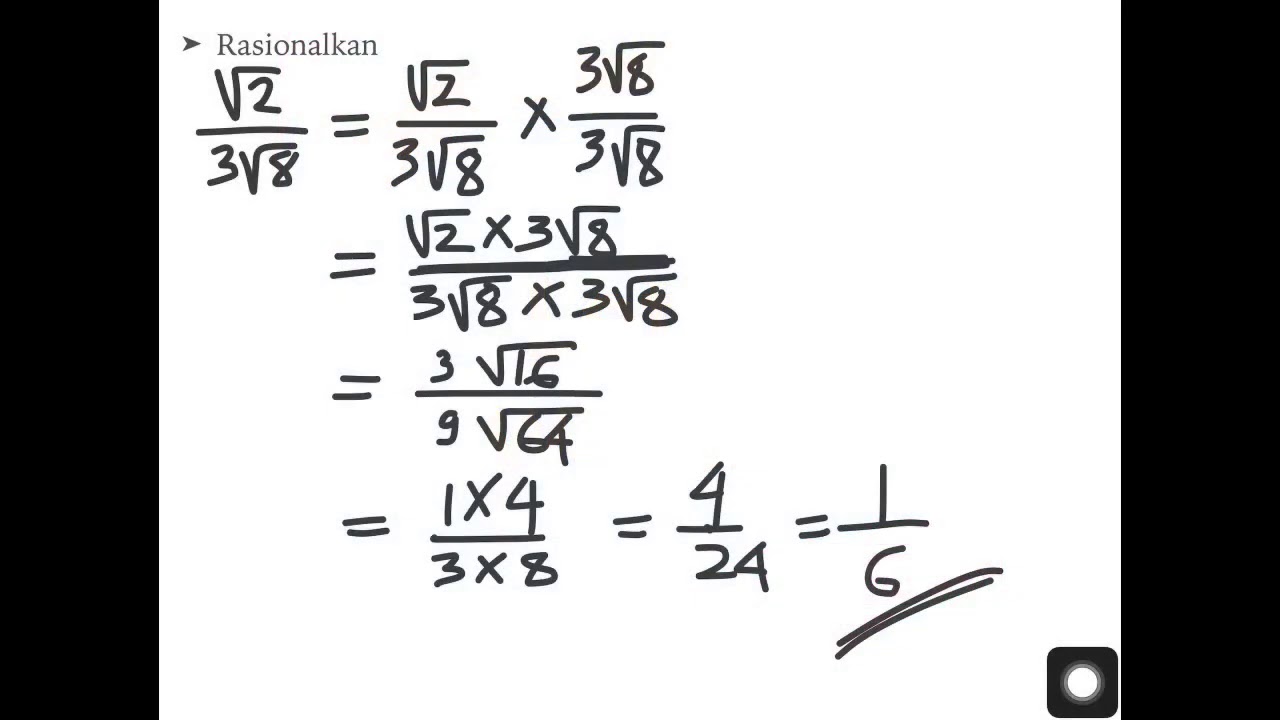 ➤ Rasionalkan
√2/3√8 = √2/3√8 × 3√8/3√8
= √2 × 3√8/3√8 × 3√8
= 3 √16/9 √64
= 1×4/3×8 = 4/24 = 1/6